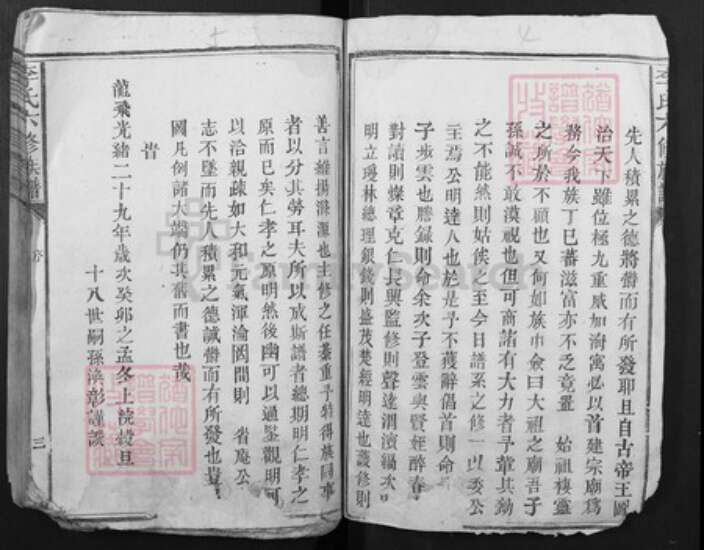 先人積累之德將欝而有所發耶且自古帝王圖
治天下雖位極九重威加海寓必以首建宗廟爲
務今我族丁巳蕃滋富亦不乏竟置 始祖棲靈
之所於不顧也又何如族中僉曰大祖之廟吾子
孫誠不敢漠視也但可商諸有大力者子輩其勷
之不能然則姑俟之至今日譜系之修一以委公
至焉公明達人也於是予不獲辭倡首則命
子步雲也謄録則命余次子登雲與賢姪醉春
對讀則燦章克仁長興監修則聲達
明立瑗林總理銀錢則盛茂楚經明達也護修則
善言維揚滁源也主修之任綦重予特得族同事
者以分其勞耳夫所以成斯譜者總期明仁孝之
原而已矣仁孝之原明然後幽可以通鑒觀明可
以洽親疎如大和元氣渾淪固間則 省庵公
志不墜而先人積累之德誠欝而有所發也豈
國凡例諸大端仍其舊而書也哉
旹
龍飛光緒二十九年歲次癸卯之孟冬上浣穀旦
十八世嗣孫 彰謹譔
李氏六修族譜
三
FamilySearch